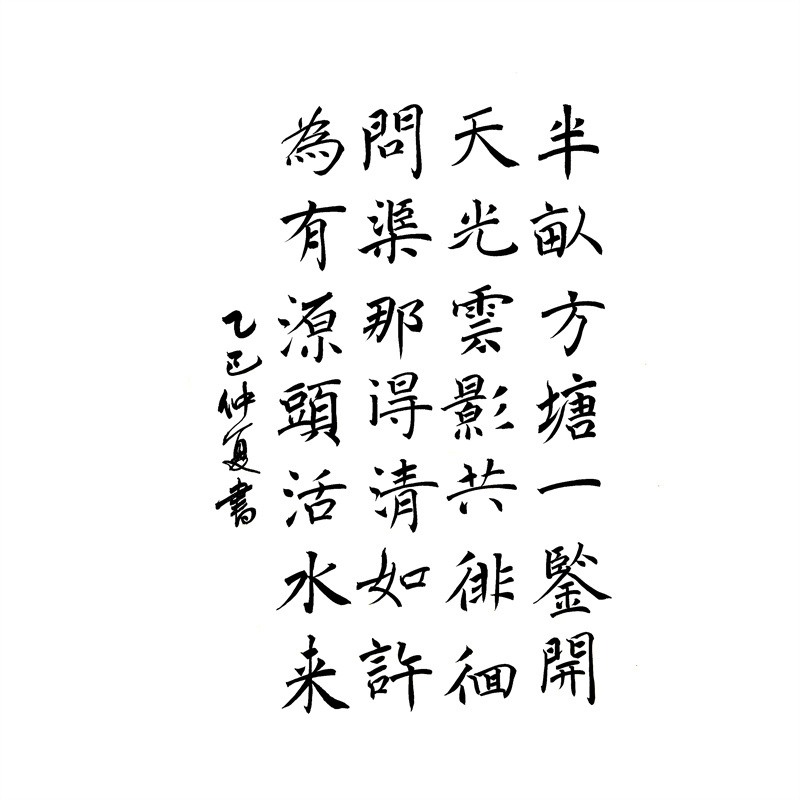 半畝方塘一鑒開
天光雲影共徘徊
問渠那得清如許
為有源頭活水来
乙巳仲夏書